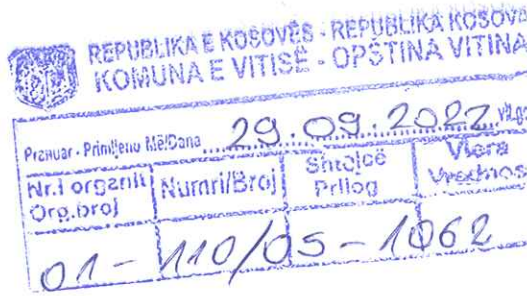 REPUBLIKA E KOSOVËS - REPUBLIKA KOSOVA
KOMUNA E VITISË - OPŠTINA VITINA
Pranuar - Primljeno Më/Dana 29.09.2022
Nr.i organit Numri/Broj Shtojcë Vlera
Org.broj Prilog Vrednos
01- 110/05-1062